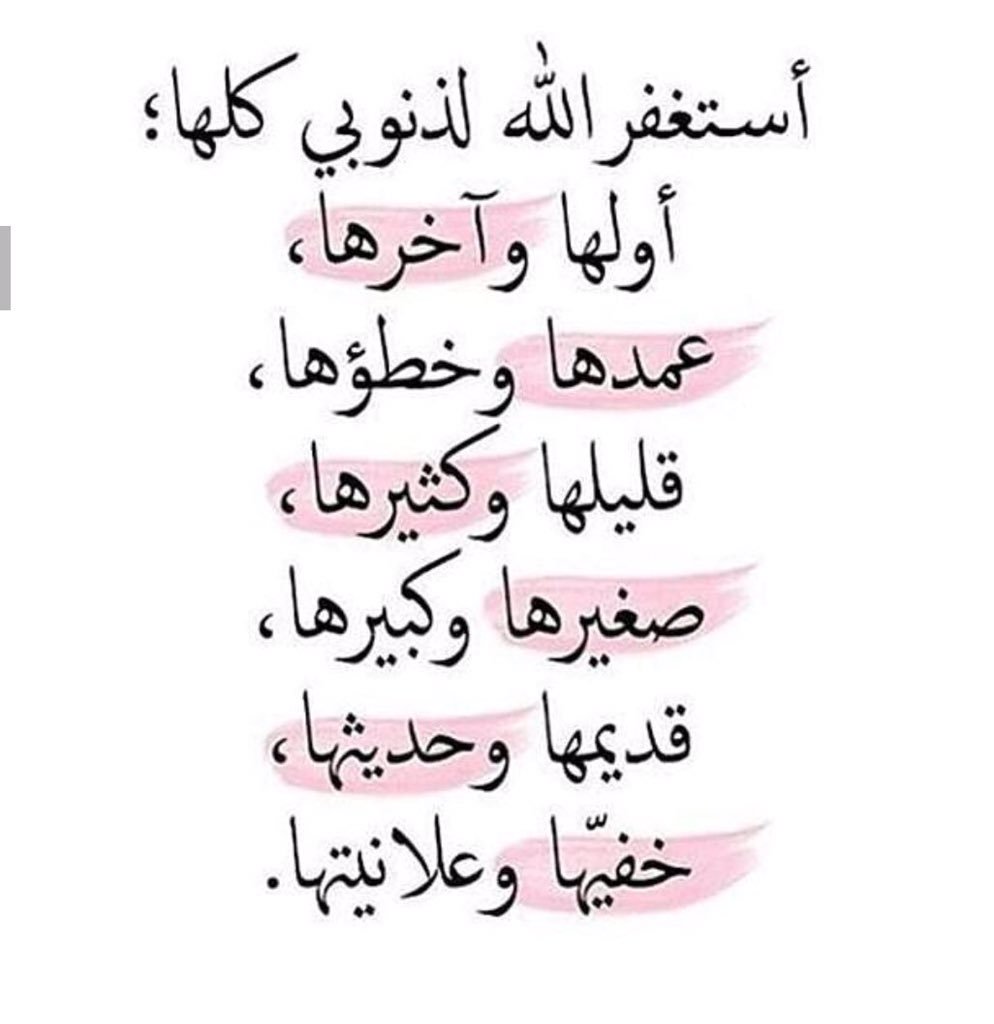 أستغفر الله لذنوبي كلها؛
أولها وآخرها،
عمدها وخطؤها،
قليلها وكثيرها،
صغيرها وكبيرها،
قديمها وحديثها،
خفيّها وعلانيتها.